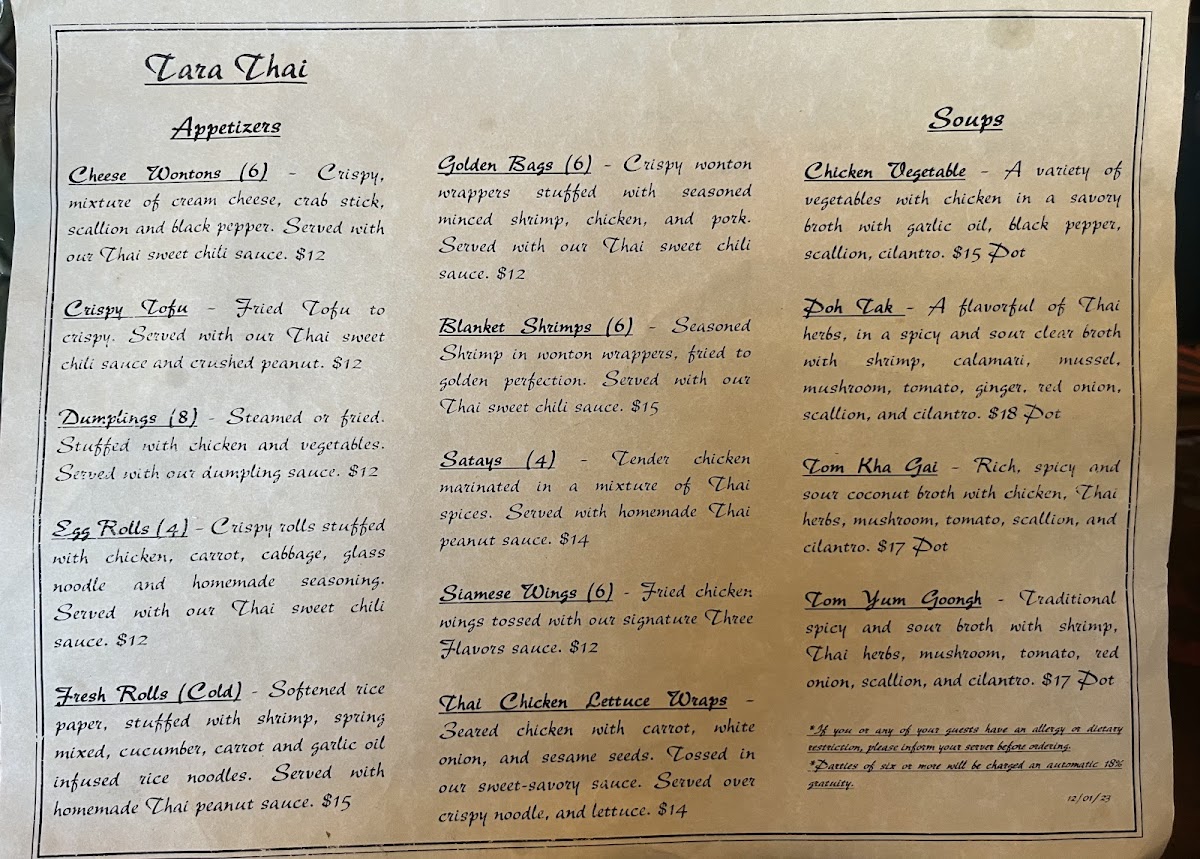 Tara Thai
Appetizers
Cheese Wontons (6) - Crispy,
mixture of cream cheese, crab stick,
scallion and black pepper. Served with
our Thai sweet chili sauce. $12
Crispy Tofu - Fried Tofu to
crispy. Served with our Thai sweet
chili sauce and crushed peanut. $12
Dumplings (8) - Steamed or fried.
Stuffed with chicken and vegetables.
Served with our dumpling sauce. $12
Egg Rolls (4) - Crispy rolls stuffed
with chicken, carrot, cabbage, glass
noodle and homemade seasoning.
Served with our Thai sweet chili
sauce. $12
Fresh Rolls (Cold) - Softened rice
paper, stuffed with shrimp, spring
mixed, cucumber, carrot and garlic oil
infused rice noodles. Served with
homemade Thai peanut sauce. $15
Golden Bags (6) - Crispy wonton
wrappers stuffed with seasoned
minced shrimp, chicken, and pork.
Served with our Thai sweet chili
sauce. $12
Blanket Shrimps (6) - Seasoned
Shrimp in wonton wrappers, fried to
golden perfection. Served with our
Thai sweet chili sauce. $15
Satays (4) - Tender chicken
marinated in a mixture of Thai
spices. Served with homemade Thai
peanut sauce. $14
Siamese Wings (6) - Fried chicken
wings tossed with our signature Three
Flavors sauce. $12
Thai Chicken Lettuce Wraps -
Seared chicken with carrot, white
onion, and sesame seeds. Tossed in
our sweet-savory sauce. Served over
crispy noodle, and lettuce. $14
Soups
Chicken Vegetable - A variety of
vegetables with chicken in a savory
broth with garlic oil, black pepper,
scallion, cilantro. $15 Pot
Poh Tak - A flavorful of Thai
herbs, in a spicy and sour clear broth
with shrimp, calamari, mussel,
mushroom, tomato, ginger, red onion,
scallion, and cilantro. $18 Pot
Tom Kha Gai - Rich, spicy and
sour coconut broth with chicken, Thai
herbs, mushroom, tomato, scallion, and
cilantro. $17 Pot
Tom Yum Goongh - Traditional
spicy and sour broth with shrimp,
Thai herbs, mushroom, tomato, red
onion, scallion, and cilantro. $17 Pot
*If you or any of your guests have an allergy or dietary
restriction, please inform your server before ordering.
*Parties of six or more will be charged an automatic 18%
gratuity.
12/01/23